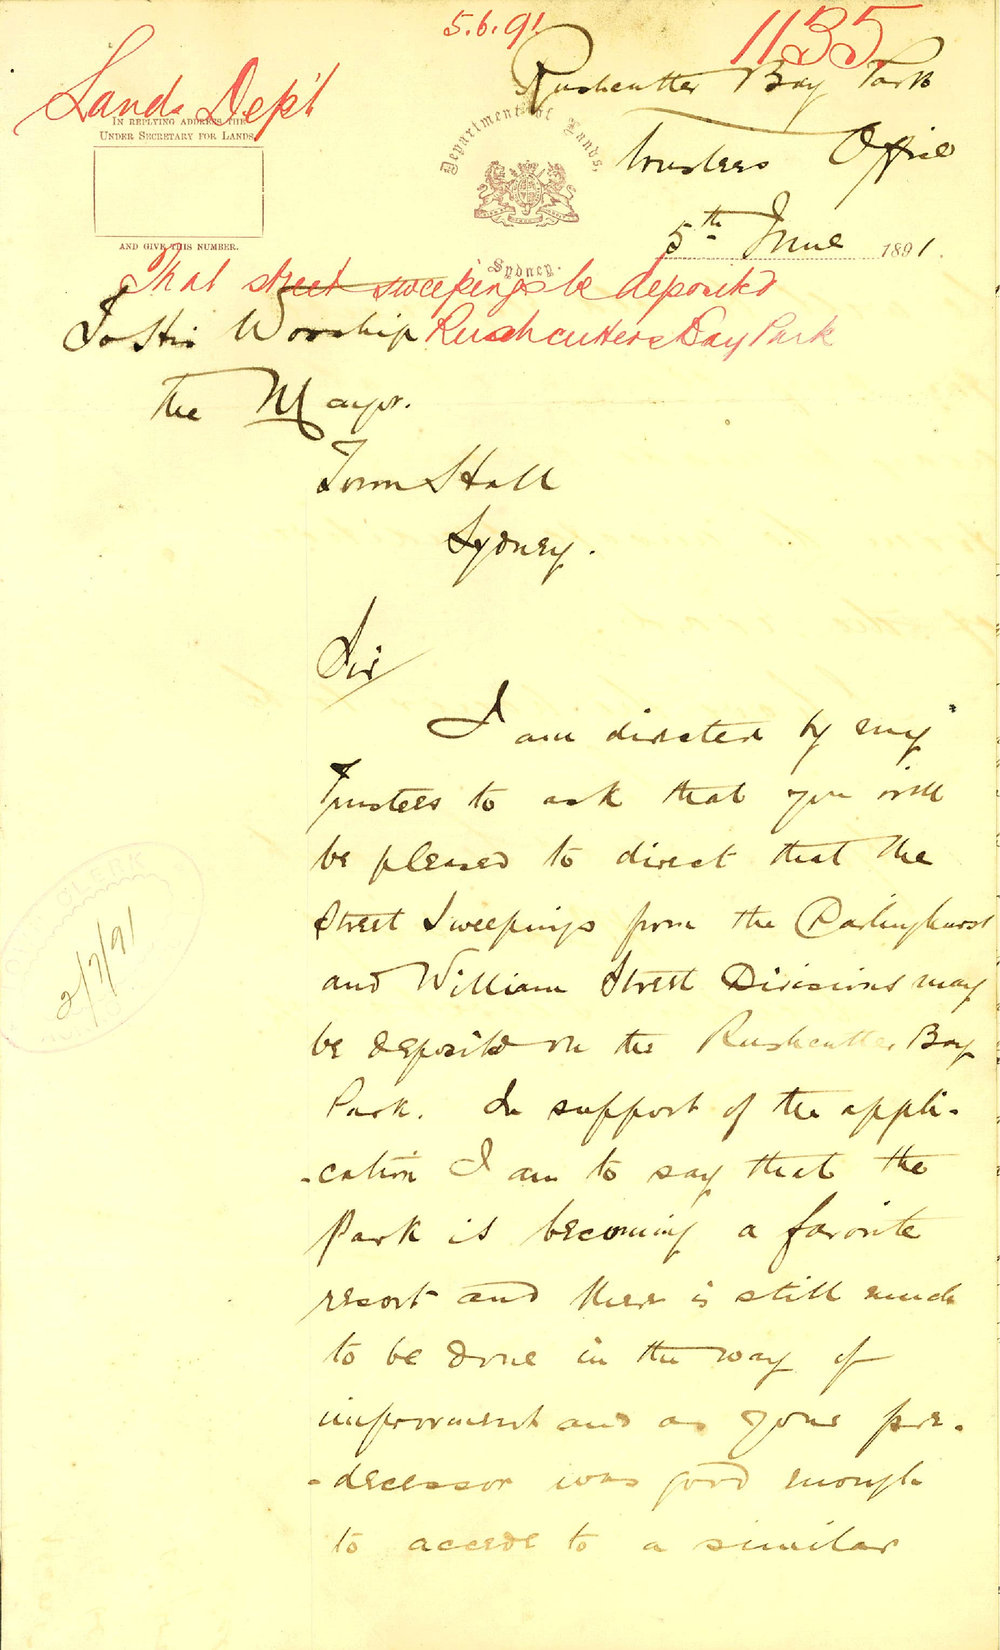 5.6.91
1135
Lands Dep't
Rushcutter Bay Park
Trustees Office
IN REPLYING ADDRESS THE
UNDER SECRETARY FOR LANDS
AND GIVE THIS NUMBER.
Department of Lands,
Sydney.
5th June 1891.
That street sweepings be deposited
Rushcutters Bay Park
To His Worship
the Mayor.
Town Hall
Sydney.
Sir
I am directed by my
Trustees to ask that you will
be pleased to direct that the
Street Sweepings from the Darlinghurst
and William Street Divisions may
be deposited on the Rushcutter Bay
Park. In support of the appli-
-cation I am to say that the
Park is becoming a favorite
resort and there is still much
to be done in the way of
improvement and as your pre-
-decessor was good enough
to accede to a similar
TOWN CLERK
2/7/91